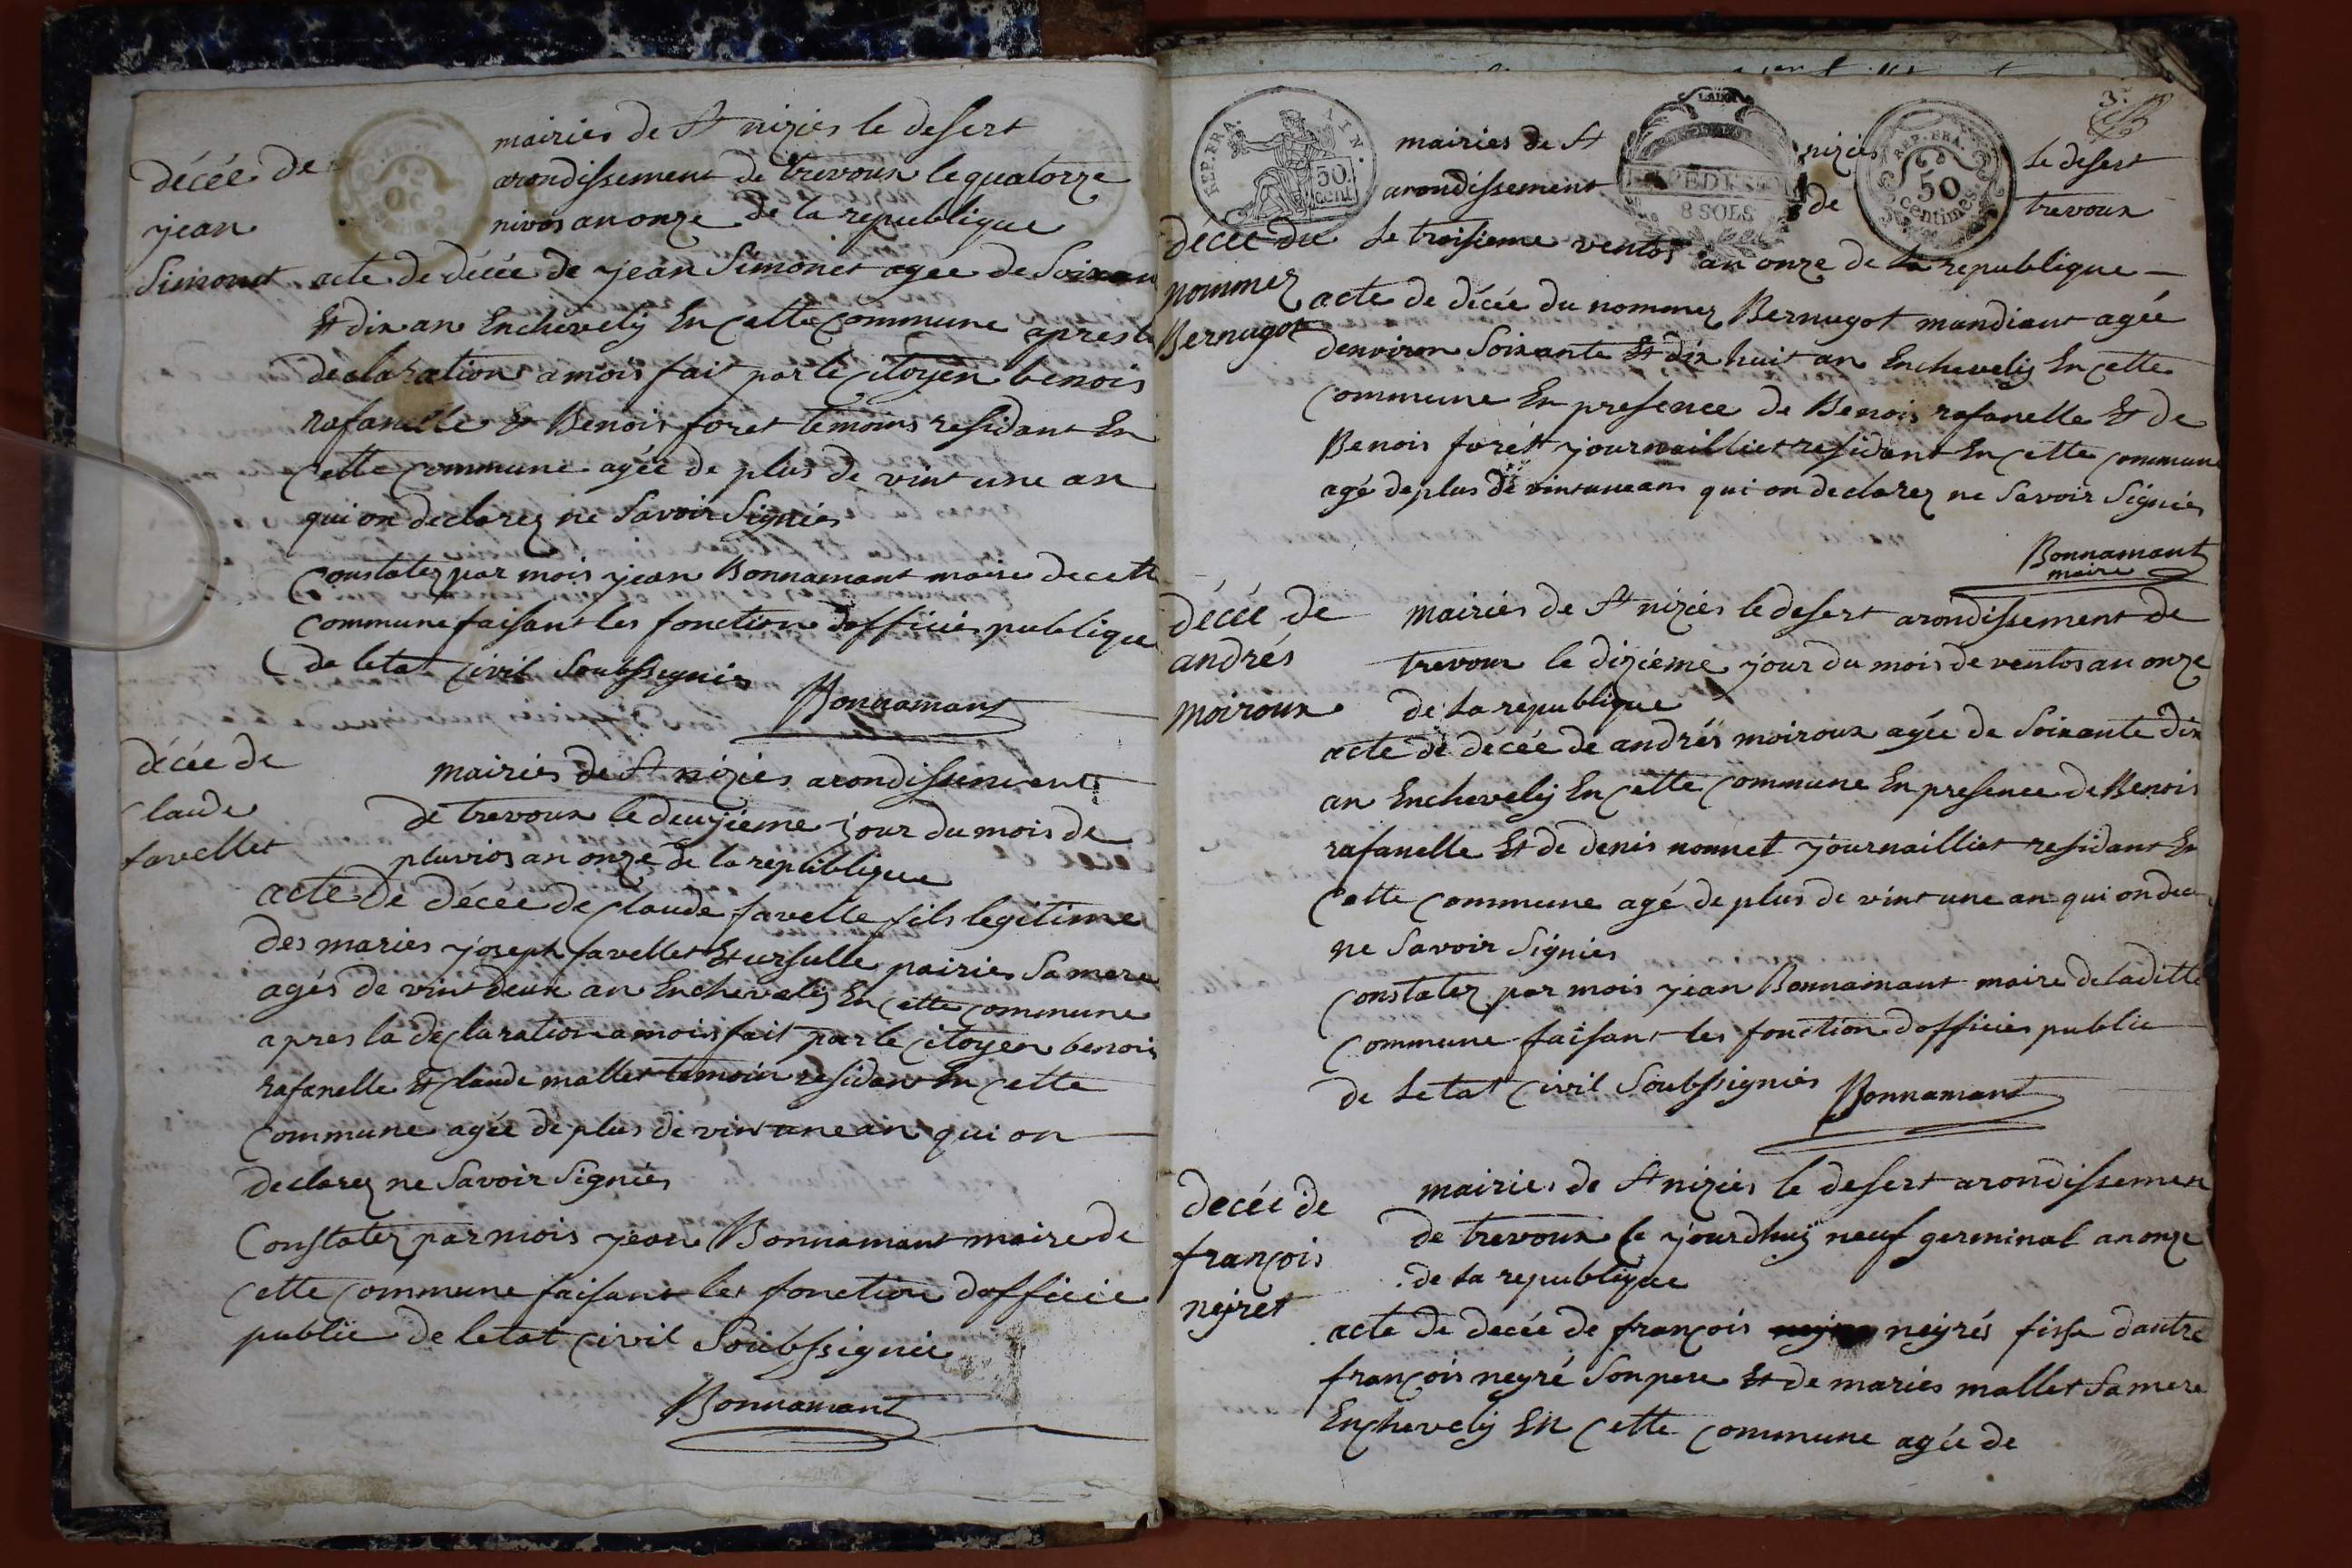 mairies de St nizies le desert
arondissement de trevoux le quatorze
nivos an onze de la republique
décée de
jean
Simonet
acte de décée de jean Simonet agée de Soixan
Et dix an Enchevelij En cette commune apres la
declaration a mois fait par le citoyen benois
rafanelle & Benois foret temoins residant En
cette commune agée de plus de vint une an
qui on declarez ne Savoir Signiés
Constatez par mois jean Bonnamant maire de cette
commune faisant les fonction dofficiés publique
de letat civil Soubssignies
Bonnamant
décée de
Claude
favellet
mairies de St nizies arondissement
de trevoux le deuzieme jour du mois de
pluvios an onze de la republique
acte de décée de Claude favelle fils legitime
des mariés joseph favellet Et ursulle pairies Sa mere
agés de vint deux an Enchevelij En cette commune
apres la declaration a mois fait par le citoyen benois
rafanelle Et claude mallet temoin residant En cette
commune agée de plus de vint une an qui on
declarez ne Savoir Signiés
Constatez par mois jean Bonnamant maire de
cette commune faisant les fonction dofficié
public de letat civil Soubssignié
Bonnamant
3e
REP. FRA.
50
cent
8 SOLS
REP. FRA.
50
centimes
mairies de St nizies le desert
arondissement de trevoux
le troisieme ventos an onze de la republique
décée du
nommez
Bernugot
acte de décée du nommez Bernugot mandiant agée
denviron Soixante Et dix huit an Enchevelij En cette
commune En presence de Benois rafanelle Et de
Benois forést journaillier residant En cette commune
agé de plus de vint une an qui on declarez ne Savoir Signiés
Bonnamant
maire
décée de
andrés
moiroux
mairiés de St niziés le desert arondissement de
trevoux le dizieme jour du mois de ventos an onze
de la republique
acte de décée de andrés moiroux agée de Soixante dix
an Enchevelij En cette commune En presence de Benois
rafanelle Et de denis nonnet journaillier residant En
cette commune agé de plus de vint une an qui on dec
ne Savoir Signiés
Constatez par mois jean Bonnamant maire de laditte
commune faisant les fonction dofficiés public
de letat civil Soubssigniés
Bonnamant
decée de
françois
nejret
mairies de St niziés le desert arondissemen
de trevoux ce jourdhuij neuf germinal an onze
de la republique
acte de decée de françois nejrés fisse dautre
françois neyré Son pere Et de maries mallet Sa mere
Enchevelij En cette commune agée de